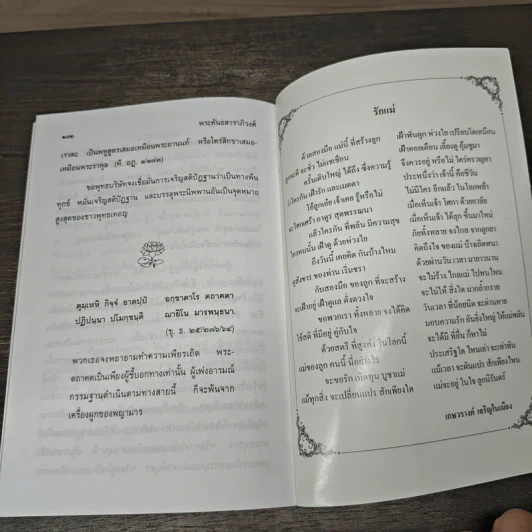 ๑๗๒
พระคันธสาราภิวงศ์
เรวตะ เป็นพหูสูตรเสมอเหมือนพระอานนท์ หรือใคร่สิกขาเสมอ-
เหมือนพระราหุล (ที. อฏ. ๑/๑๗๓)
ขอพุทธบริษัทจงเชื่อมั่นการเจริญสติปัฏฐานว่าเป็นทางพ้น
ทุกข์ หมั่นเจริญสติปัฏฐาน และบรรลุพระนิพพานอันเป็นจุดหมาย
สูงสุดของชาวพุทธเทอญ
ตุมฺเหหิ กิจฺจํ อาตปฺปํ อกฺขาตาโร ตถาคตา
ปฏิปนฺนา ปโมกฺขนฺติ ฌายิโน มารพนฺธนา.
(ขุ. ธ. ๒๕/๒๗๖/๖๔)
พวกเธอจงพยายามทำความเพียรเถิด พระ-
ตถาคตเป็นเพียงผู้ชี้บอกทางเท่านั้น ผู้เพ่งอารมณ์
กรรมฐานดำเนินตามทางสายนี้ ก็จะพ้นจาก
เครื่องผูกของพญามาร
รักแม่
ด้วยสองมือ แม่นี้ ที่สร้างลูก เฝ้าพันผูก ห่วงใย เปรียบใดเหมือน
จะชั่ว ไม่แชเชือน เฝ้าคอยเตือน เลี้ยงดู อุ้มชูมา
ครั้นเติบใหญ่ ได้ถึง ซึ่งความรู้ จึงควรอยู่ หรือไม่ ใคร่ครวญหา
ใครกัน เฝ้ารัก และเมตตา ประหนึ่งว่า เจ้านี้ คือชีวัน
ได้ลูกเอ๋ย เจ้าเคย รู้หรือไม่ ไม่มีใคร อีกแล้ว ในโลกหล้า
เศร้า อาดูร สุดพรรณนา เมื่อเห็นเจ้า โศกา ด้วยอาลัย
แล้วใครกัน ที่พลัน มีความสุข เมื่อเห็นเจ้า ได้ลุก ขึ้นมาใหม่
ใครคนนั้น เฝ้าดู ด้วยห่วงใย ภัยทั้งหลาย จงไกล จากลูกยา
ถึงวันนี้ เคยคิด กันบ้างไหม คิดถึงใจ ของแม่ บ้างสิคนา
สังขาร ของท่าน เริ่มชรา ด้วยผ่านวัน เวลา มายาวนาน
กับสองมือ ของลูก ที่จะสร้าง จะไม่ร้าง ไกลแม่ ไปพบไหน
จะเฝ้าอยู่ เฝ้าดูแล ดั่งดวงใจ จะไม่ให้ สิ่งใด มากล้ำกราย
ขอพวกเรา ทั้งหลาย จงได้คิด วันเวลา ที่น้อยนิด จะผ่านหาย
ใช้สติ ที่มีอยู่ คู่กับใจ มอบความรัก อันยิ่งใหญ่ ให้แม่พลัน
ด้วยสตรี ที่สูงส่ง ในโลกนี้ จะได้มี ที่อื่น ก็หาไม่
แม่ของลูก คนนี้ นี่อย่างไร ประเสริฐใด ไหนเล่า จะเท่าทัน
จะขอรัก เทิดทูน บูชาแม่ แม้เวลา จะผันแปร สักเพียงไหน
แม้ทุกสิ่ง จะเปลี่ยนแปร สักเพียงใด แม่จะอยู่ ในใจ ลูกนิรันดร์
เกษวรางค์ เจริญในเมือง